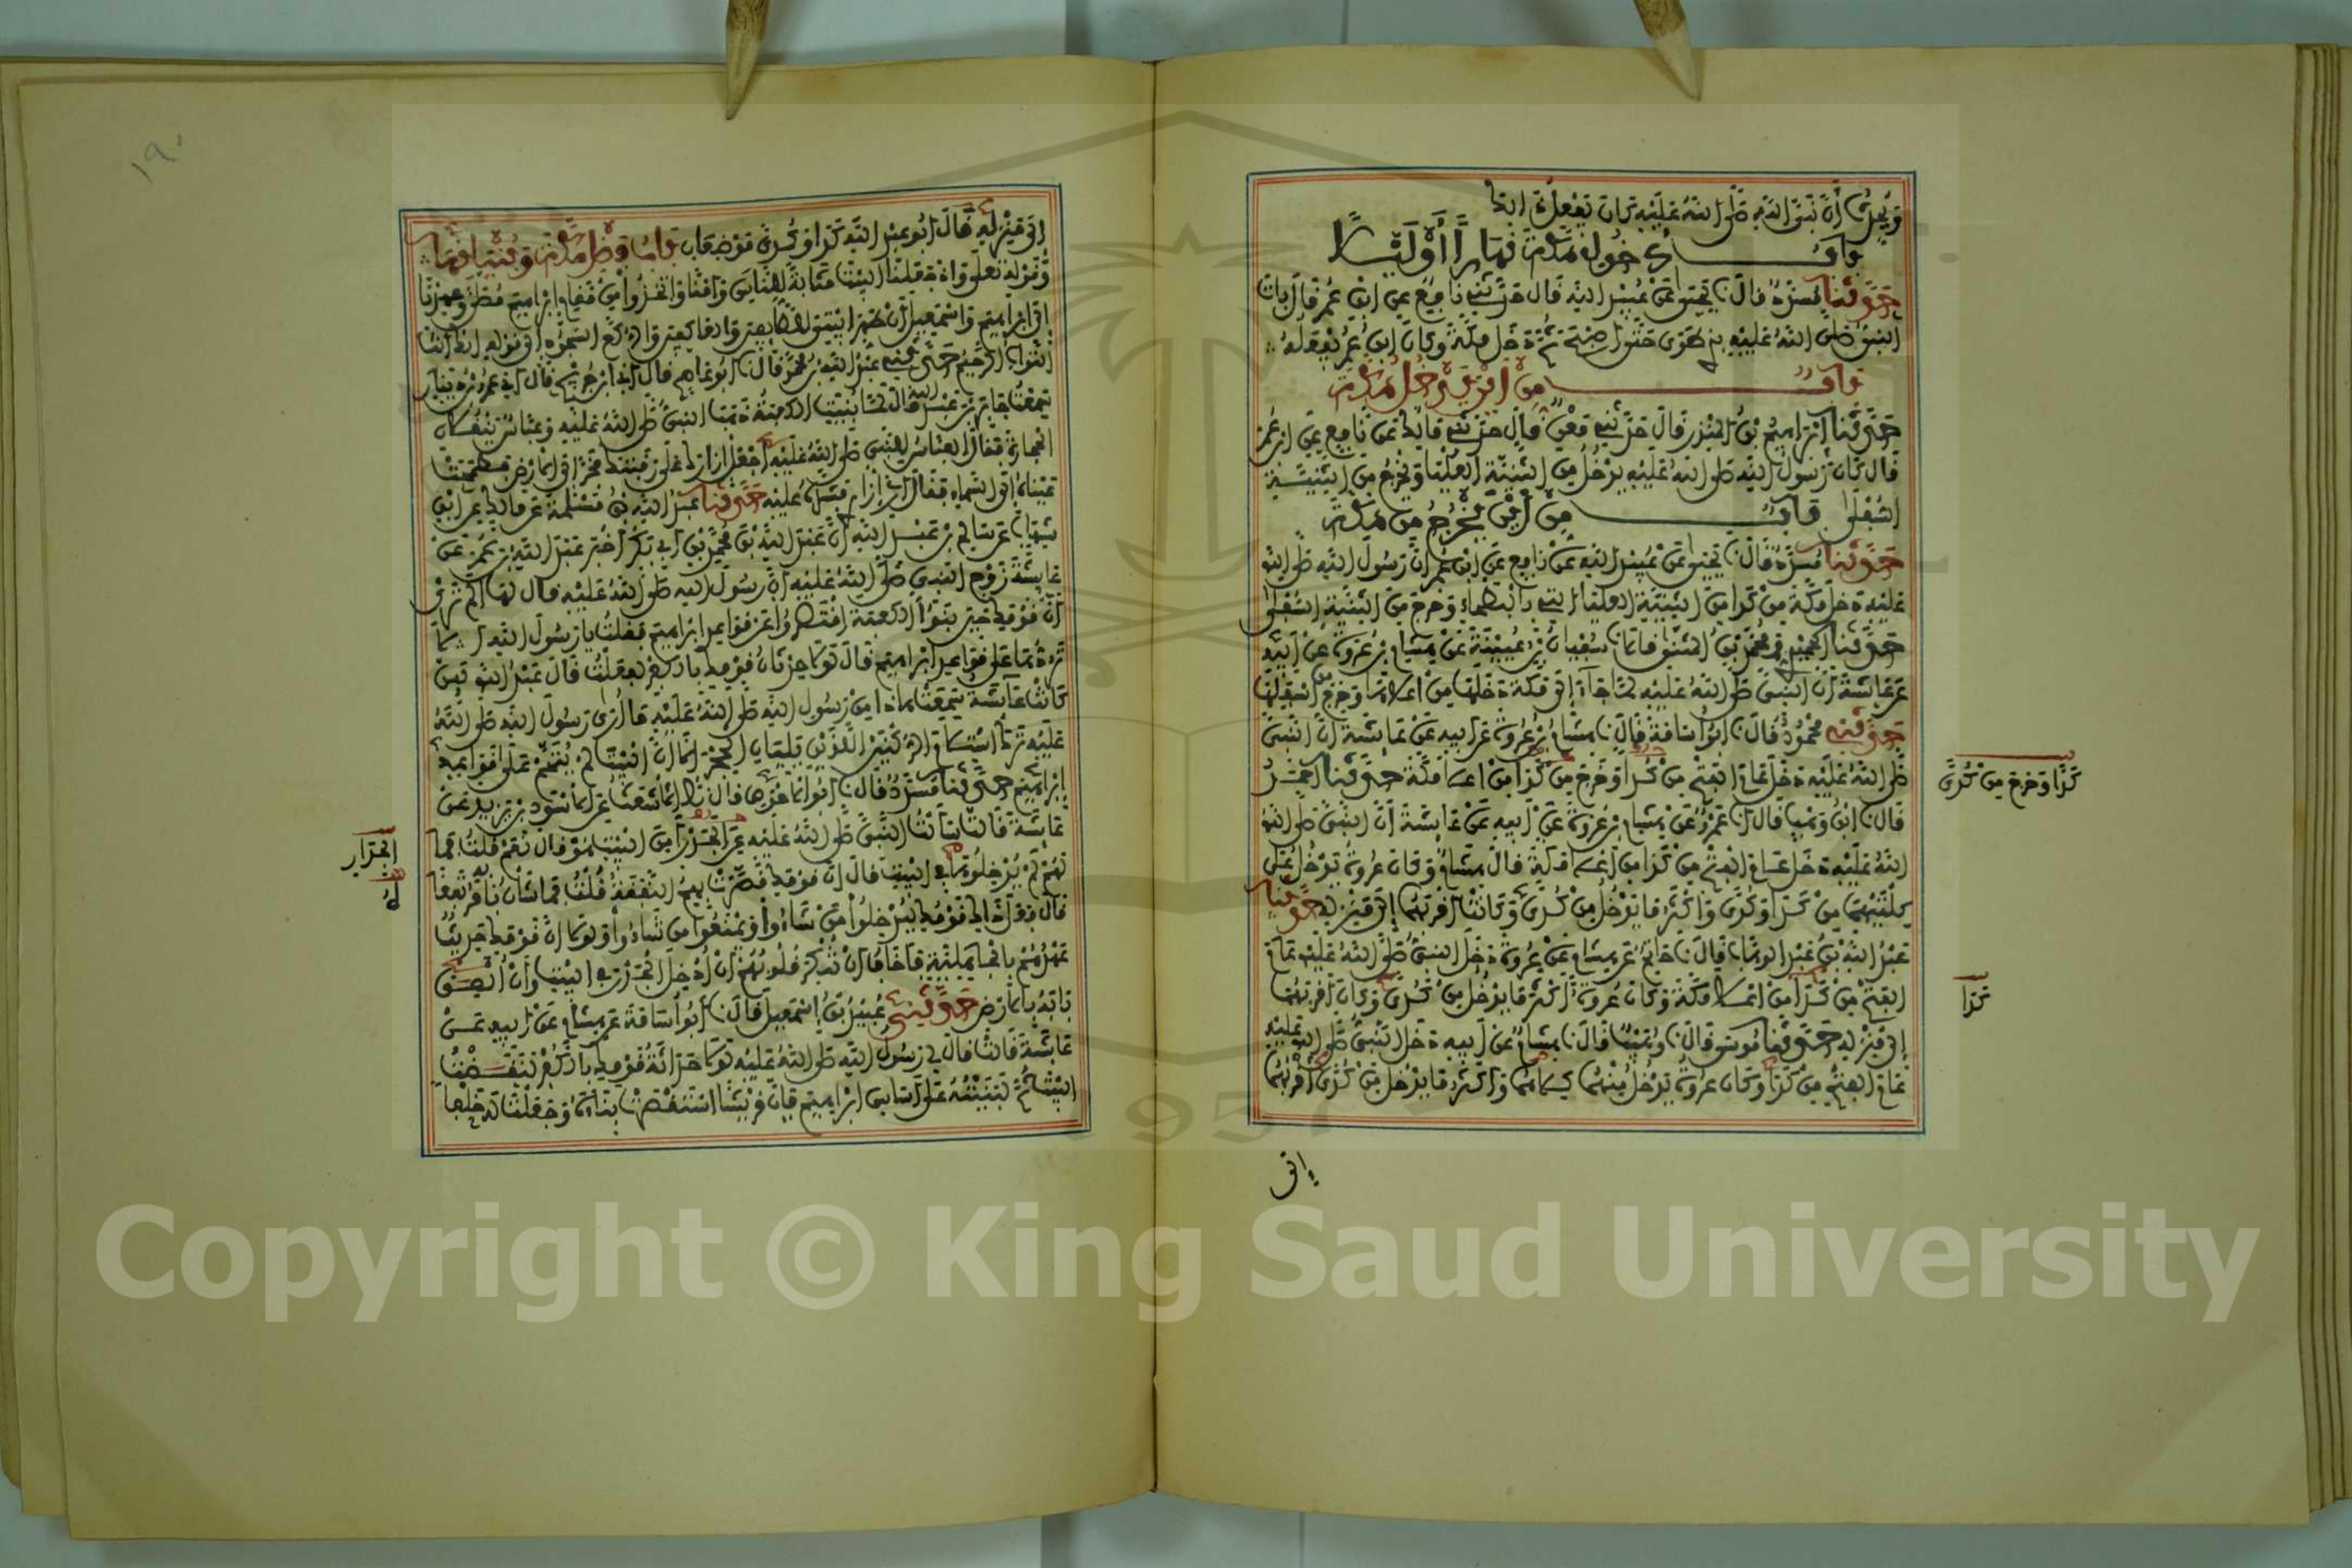 ويحدث أن نبي الله صلى الله عليه كان يفعل ذلك
باب دخول مكة نهارا أو ليلا
حدثنا مسدد قال نا يحيى عن عبيد الله قال حدثني نافع عن ابن عمر قال بات
النبي صلى الله عليه بذي طوى حتى أصبح ثم دخل مكة وكان ابن عمر يفعله
باب من أين يدخل مكة
حدثنا إبراهيم بن المنذر قال حدثني معن قال حدثني مالك عن نافع عن ابن عمر
قال كان رسول الله صلى الله عليه يدخل من الثنية العليا ويخرج من الثنية
السفلى باب من أين يخرج من مكة
حدثنا مسدد قال نا يحيى عن عبيد الله عن نافع عن ابن عمر أن رسول الله صلى الله
عليه دخل مكة من كدا من الثنية العليا التي بالبطحاء وخرج من الثنية السفلى
حدثنا الحميدي ومحمد بن المثنى قالا نا سفيان بن عيينة عن هشام بن عروة عن أبيه
عن عائشة أن النبي صلى الله عليه لما جاء إلى مكة دخلها من أعلاها وخرج من أسفلها
حدثني محمود قال نا أبو أسامة قال نا هشام بن عروة عن أبيه عن عائشة أن النبي
صلى الله عليه دخل عام الفتح من كدا وخرج من كدا من أعلا مكة حدثنا أحمد
قال نا ابن وهب قال نا عمرو عن هشام بن عروة عن أبيه عن عائشة أن النبي صلى الله
الله عليه دخل عام الفتح من كدا من أعلا مكة قال هشام وكان عروة يدخل على
كلتيهما من كدا وكدى وأكثر ما يدخل من كدى وكانت أقربهما إلى منزله حدثنا
عبد الله بن عبد الوهاب قال نا حاتم عن هشام عن عروة دخل النبي صلى الله عليه عام
الفتح من كدا من أعلا مكة وكان عروة أكثر ما يدخل من كدى وكان أقربهما
إلى منزله حدثنا موسى قال نا وهيب قال نا هشام عن أبيه دخل النبي صلى الله عليه
عام الفتح من كدا وكان عروة يدخل منهما كلاهما وأكثر ما يدخل من كدى أقربهما
كدا وخرج من كدى
كدا
إلى
إلى منزله قال أبو عبد الله كدا وكدى موضعان باب فضل مكة وبنيانها
وقوله تعلى وإذ جعلنا البيت مثابة للناس وأمنا واتخذوا من مقام إبراهيم مصلى وعهدنا
إلى إبراهيم وإسمعيل أن طهرا بيتي للطائفين والعاكفين والركع السجود إلى قوله إنك أنت
التواب الرحيم حدثني عبد الله بن محمد قال نا أبو عاصم قال أنا ابن جريج قال أنا عمرو بن دينار
سمعت جابر بن عبد الله قال لما بنيت الكعبة ذهب النبي صلى الله عليه وعباس ينقلان
الحجارة فقال العباس للنبي صلى الله عليه اجعل إزارك على رقبتك فخر إلى الأرض فطمحت
عيناه إلى السماء فقال أرني إزاري فشده عليه حدثنا عبد الله بن مسلمة عن مالك عن ابن
شهاب عن سالم بن عبد الله أن عبد الله بن محمد بن أبي بكر أخبر عبد الله بن عمر عن
عائشة زوج النبي صلى الله عليه أن رسول الله صلى الله عليه قال لها ألم تري
أن قومك حين بنوا الكعبة اقتصروا عن قواعد إبراهيم فقلت يا رسول الله ألا
تردها على قواعد إبراهيم قال لولا حدثان قومك بالكفر لفعلت قال عبد الله لئن
كانت عائشة سمعت هاذا من رسول الله صلى الله عليه ما أرى رسول الله صلى الله
عليه ترك استلام الركنين اللذين يليان الحجر إلا أن البيت لم يتمم على قواعد
إبراهيم حدثنا مسدد قال نا أبو الأحوص قال نا الأشعث عن الأسود بن يزيد عن
عائشة قالت سألت النبي صلى الله عليه عن الجدر أمن البيت هو قال نعم قلت فما
لهم لم يدخلوه في البيت قال إن قومك قصرت بهم النفقة قلت فما شأن بابه مرتفعا
قال فعل ذلك قومك ليدخلوا من شاءوا ويمنعوا من شاءوا ولولا أن قومك حديث
عهدهم بالجاهلية فأخاف أن تنكر قلوبهم أن أدخل الجدر في البيت وأن ألصق
بابه بالأرض حدثني عبيد بن إسمعيل قال نا أبو أسامة عن هشام عن أبيه عن
عائشة قالت قال لي رسول الله صلى الله عليه لولا حداثة قومك بالكفر لنقضت
البيت ثم لبنيته على أساس إبراهيم فإن قريشا استقصرت بناءه وجعلت له خلفا
الجدار
١٩٠